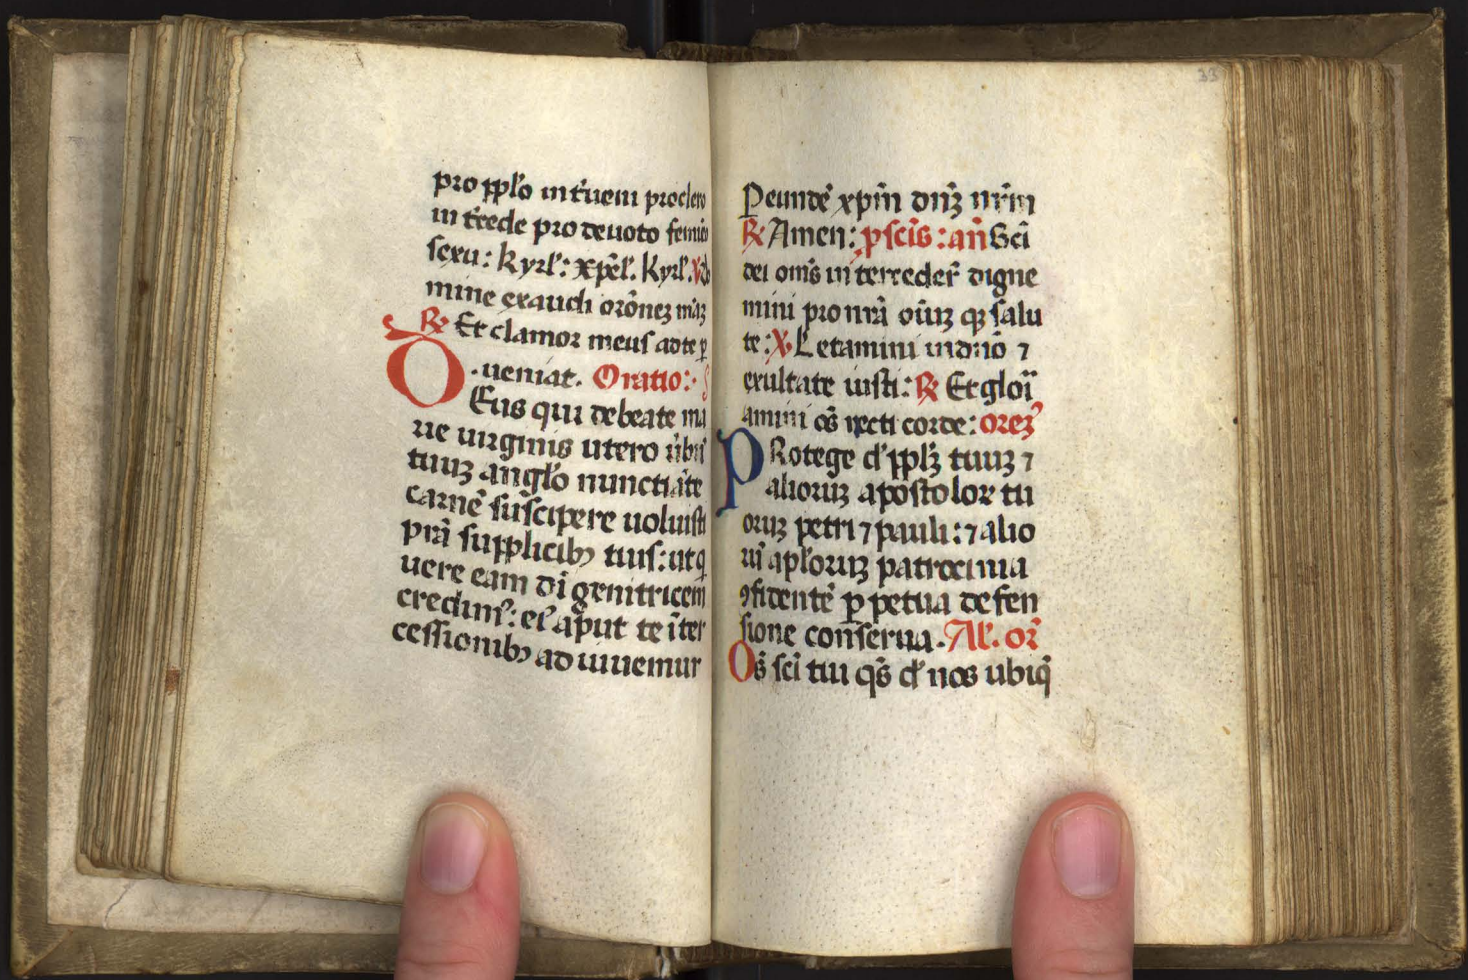 pro pp̄lo intꝰueni proclero
in tꝰcede pro deuoto femīeo
sexu: kyrl̄: xp̄el̄. kyrl̄. ℣ Do
mine exaudi orōneʒ mēaʒ
℟ Et clamor meus adte ꝑ
ueniat. Oratio:
DEus qui debeate ma
rie uirginis utero ūbū
tuuʒ angl̄o nunctiāte
carnē suscipere uoluisti
p̄rā supplicibꝰ tuis: ut q̄
uere eam dī genitricem
credimꝰ: eiꝰ aput te īter
cessionibꝰ adiuuemur
Peundē xp̄m dn̄ʒ nr̄m
℟ Amen: ꝓ sc̄is: an̄ Sc̄i
dei om̄s interceder̄ digne
mini pro nr̄a oīuʒ qʒ salu
te: ℣ Letamini in dn̄o ⁊
exultate iusti: ℟ Et glorī
amini oēs recti corde: oreʒ̄
PRotege dn̄e pp̄lʒ tuuʒ ⁊
alioruʒ apostoloꝝ tu
oruʒ petri ⁊ pauli: ⁊ alio
rū apl̄oruʒ patrocinia
ꝯfidentē ꝑpetua defen
sione conserua. Al̄. or̄
Oēs sc̄i tui qs̄ dn̄e nos ubiq̄
33